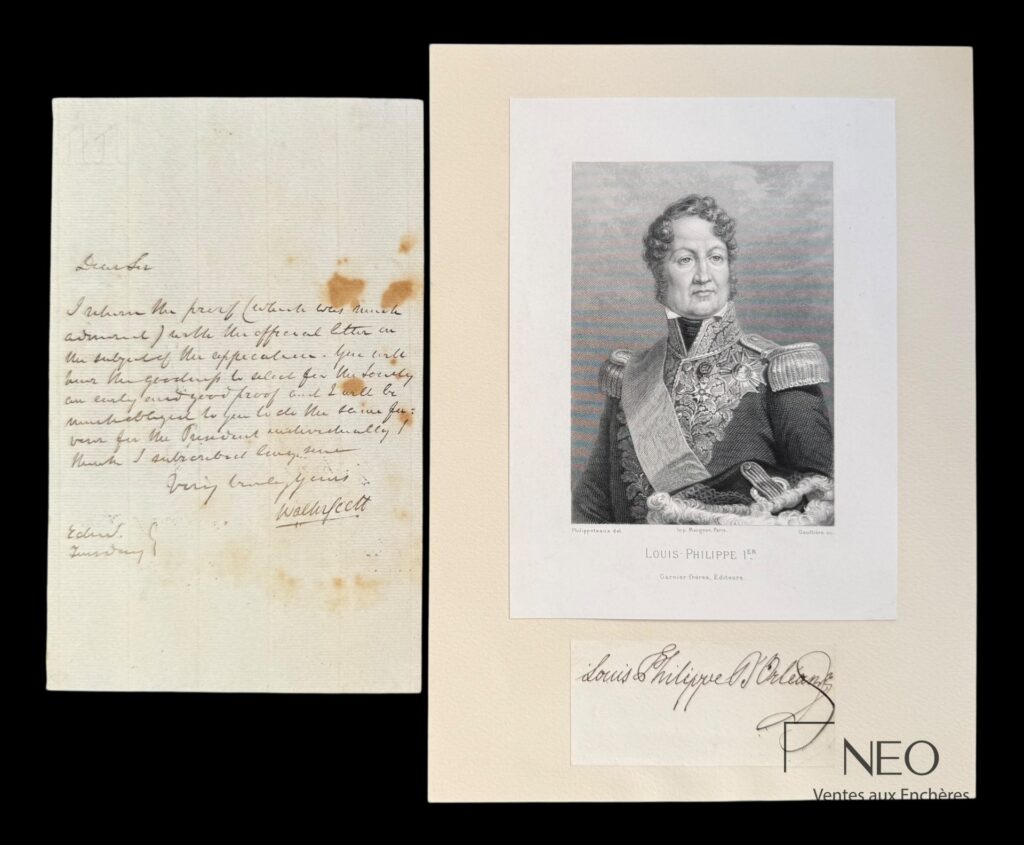 Dear Sir
I return the proof (which was much
admired) with the official letter on
the subject of the application. You will
have the goodness to select for the Society
an early and good proof and I will be
much obliged to you to do the same fa=
vour for the President individually I
think I subscribed long since
Very truly Yours
Walter Scott
Edinr.
Tuesday
Philippoteaux del.
Imp. Mangeon, Paris.
Gauthière sc.
LOUIS-PHILIPPE 1ER
Garnier frères, Editeurs.
Louis Philippe D'Orléans
NEO
Ventes aux Enchères